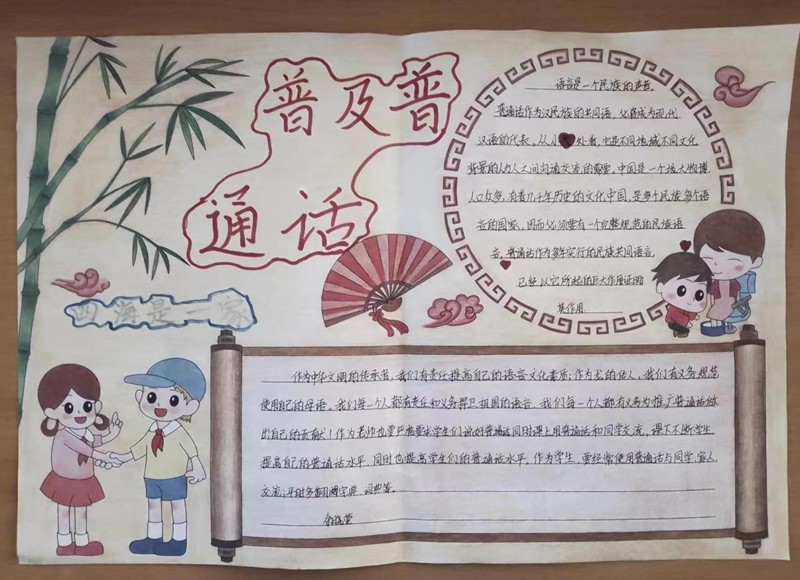 普及普
通话
四海是一家
语言是一个民族的声音
普通话作为汉民族的共同语，必将成为现代
汉语的代表，从 处看，它是不同地域不同文化
背景的人与人之间沟通交流的需要。中国是一个地大物博
人口众多，有着几千年历史的文化中国，是多个民族多个语
言的国家，因而必须要有一个完整规范的民族语
言，普通话作为多年实行的民族共同语言，
已经以它所起的巨大作用证明
其作用
作为中华文明的传承者，我们有责任提高自己的语言文化素质；作为 的传人，我们有义务规范
使用自己的母语。我们每一个人都有责任和义务捍卫祖国的语言，我们每一个人都有义务为推广普通话做
出自己的贡献！作为老师也要严格要求学生们说好普通话同时课上用普通话和同学交流，课下不断学生
提高自己的普通话水平，同时也提高学生们的普通话水平，作为学生，要经常使用普通话与同学、家人
交流；平时多翻阅字典，词典等。